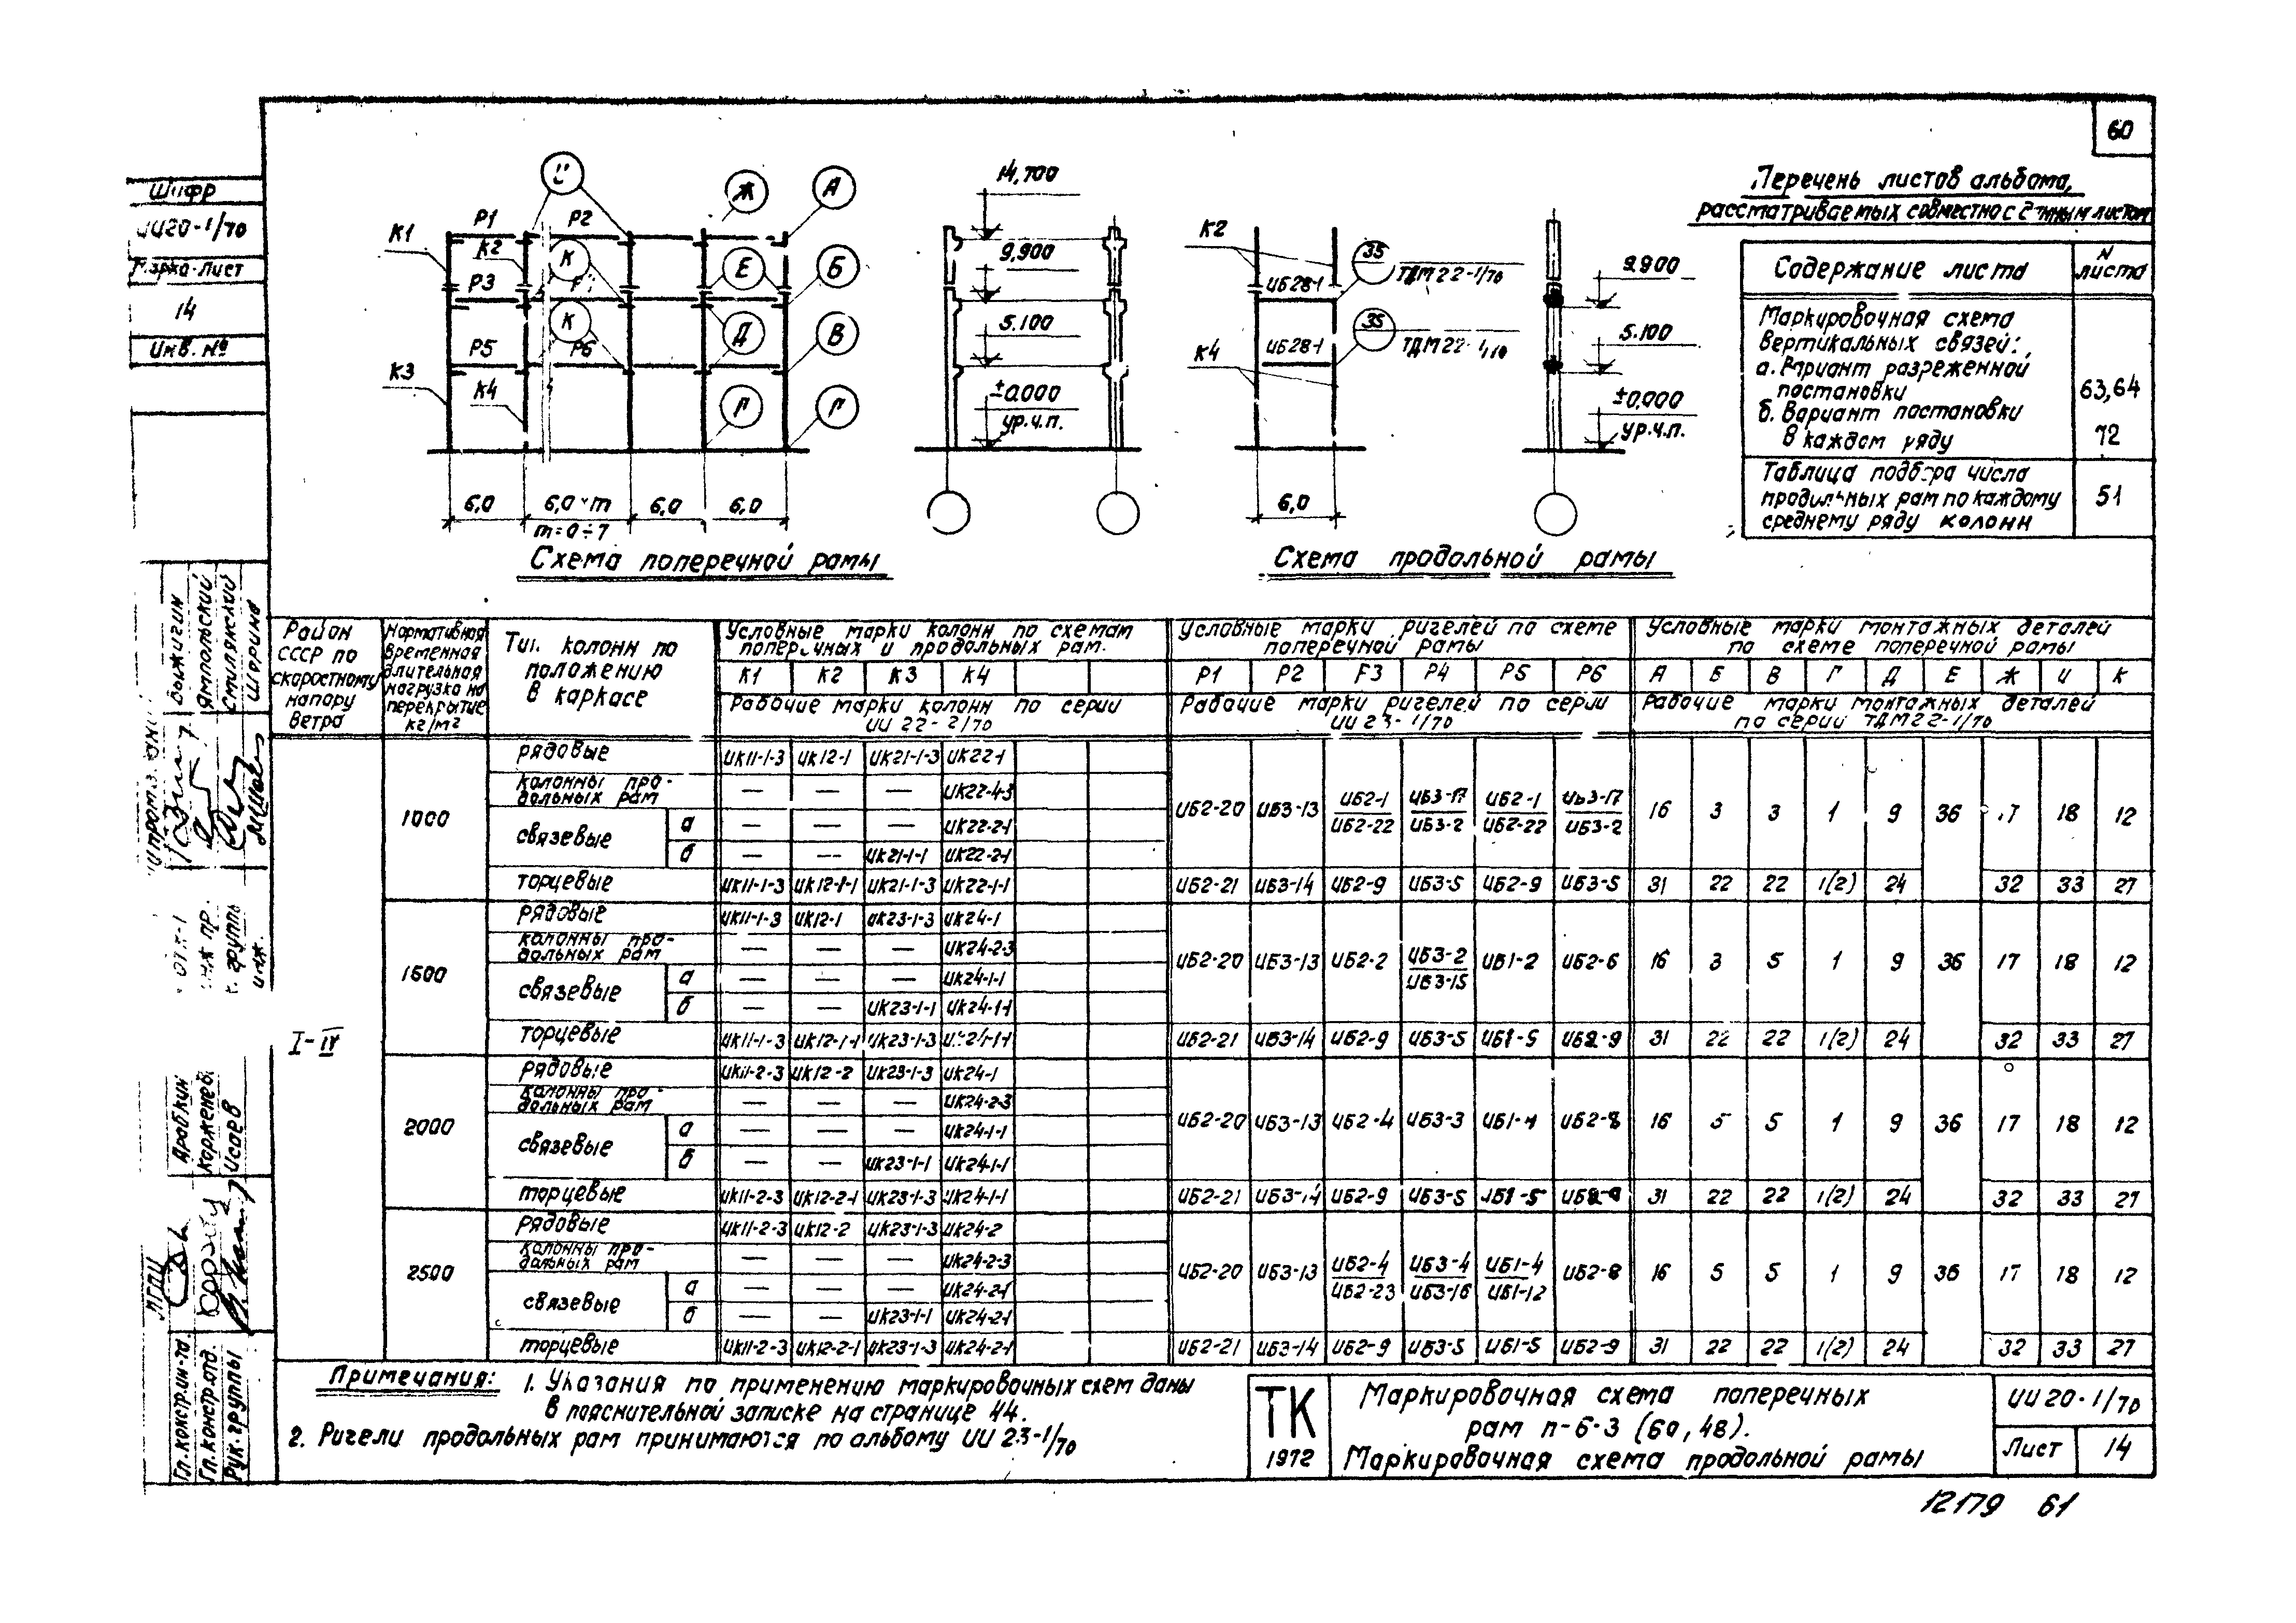 60
Перечень листов альбома,
рассматриваемых совместно с данным листом
Содержание листа
N листа
Маркировочная схема
вертикальных связей:
а. Вариант разреженной
постановки
63,64
б. Вариант постановки
в каждом ряду
72
Таблица подбора числа
продольных рам по каждому
среднему ряду колонн
51
Шифр
ИИ20-1/70
Марка-лист
14
Инв. №
И Ж А
К1 Р1 К2 Р2
К Е Б
Р3
К Д В
Р5 Р6
К3 К4 Г
6,0 6,0·m 6,0 6,0
m=0÷7
Схема поперечной рамы
14,700
9,900
5.100
±0,000
ур.ч.п.
К2
ИБ28-1
35
ТДМ22-1/70
К4
ИБ28-1
35
6,0
9.900
5.100
±0,000
ур.ч.п.
Схема продольной рамы
Район СССР по скоростному напору ветра
Нормативная временная длительная нагрузка на перекрытие кг/м²
Тип колонн по положению в каркасе
Условные марки колонн по схемам поперечных и продольных рам.
К1 К2 К3 К4
Рабочие марки колонн по серии ИИ 22-2/70
Условные марки ригелей по схеме поперечной рамы
Р1 Р2 Р3 Р4 Р5 Р6
Рабочие марки ригелей по серии ИИ 23-1/70
Условные марки монтажных деталей по схеме поперечной рамы
А Б В Г Д Е Ж И К
Рабочие марки монтажных деталей по серии ТДМ22-1/70
I-IV
1000
рядовые ИК11-1-3 ИК12-1 ИК21-1-3 ИК22-1
колонны продольных рам — — — ИК22-4-3
связевые а — — — ИК22-2-1
б — — ИК21-1-1 ИК22-2-1
ИБ2-20 ИБ3-13 ИБ2-1/ИБ2-22 ИБ3-17/ИБ3-2 ИБ2-1/ИБ2-22 ИБ3-17/ИБ3-2 16 3 3 1 9 36 17 18 12
торцевые ИК11-1-3 ИК12-1-1 ИК21-1-3 ИК22-1-1 ИБ2-21 ИБ3-14 ИБ2-9 ИБ3-5 ИБ2-9 ИБ3-5 31 22 22 1(2) 24 32 33 27
1500
рядовые ИК11-1-3 ИК12-1 ИК23-1-3 ИК24-1
колонны продольных рам — — — ИК24-2-3
связевые а — — — ИК24-1-1
б — — ИК23-1-1 ИК24-1-1
ИБ2-20 ИБ3-13 ИБ2-2 ИБ3-2/ИБ3-15 ИБ1-2 ИБ2-6 16 3 5 1 9 36 17 18 12
торцевые ИК11-1-3 ИК12-1-1 ИК23-1-3 ИК24-1-1 ИБ2-21 ИБ3-14 ИБ2-9 ИБ3-5 ИБ1-5 ИБ2-9 31 22 22 1(2) 24 32 33 27
2000
рядовые ИК11-2-3 ИК12-2 ИК23-1-3 ИК24-1
колонны продольных рам — — — ИК24-2-3
связевые а — — — ИК24-1-1
б — — ИК23-1-1 ИК24-1-1
ИБ2-20 ИБ3-13 ИБ2-4 ИБ3-3 ИБ1-4 ИБ2-8 16 5 5 1 9 36 17 18 12
торцевые ИК11-2-3 ИК12-2-1 ИК23-1-3 ИК24-1-1 ИБ2-21 ИБ3-14 ИБ2-9 ИБ3-5 ИБ1-5 ИБ2-9 31 22 22 1(2) 24 32 33 27
2500
рядовые ИК11-2-3 ИК12-2 ИК23-1-3 ИК24-2
колонны продольных рам — — — ИК24-2-3
связевые а — — — ИК24-2-1
б — — ИК23-1-1 ИК24-2-1
ИБ2-20 ИБ3-13 ИБ2-4/ИБ2-23 ИБ3-4/ИБ3-16 ИБ1-4/ИБ1-12 ИБ2-8 16 5 5 1 9 36 17 18 12
торцевые ИК11-2-3 ИК12-2-1 ИК23-1-3 ИК24-2-1 ИБ2-21 ИБ3-14 ИБ2-9 ИБ3-5 ИБ1-5 ИБ2-9 31 22 22 1(2) 24 32 33 27
Примечания: 1. Указания по применению маркировочных схем даны
в пояснительной записке на странице 44.
2. Ригели продольных рам принимаются по альбому ИИ 23-1/70
ТК
1972
Маркировочная схема поперечных
рам п-6-3 (60,48).
Маркировочная схема продольной рамы
ИИ 20-1/70
Лист 14
12179 61
Выжигин
Ямпольский
Стиляжский
Шорина
инж.
Дробкин
Исаев
МГПИ
Гл.констр.ин-та
Гл.констр.отд.
Рук.группы